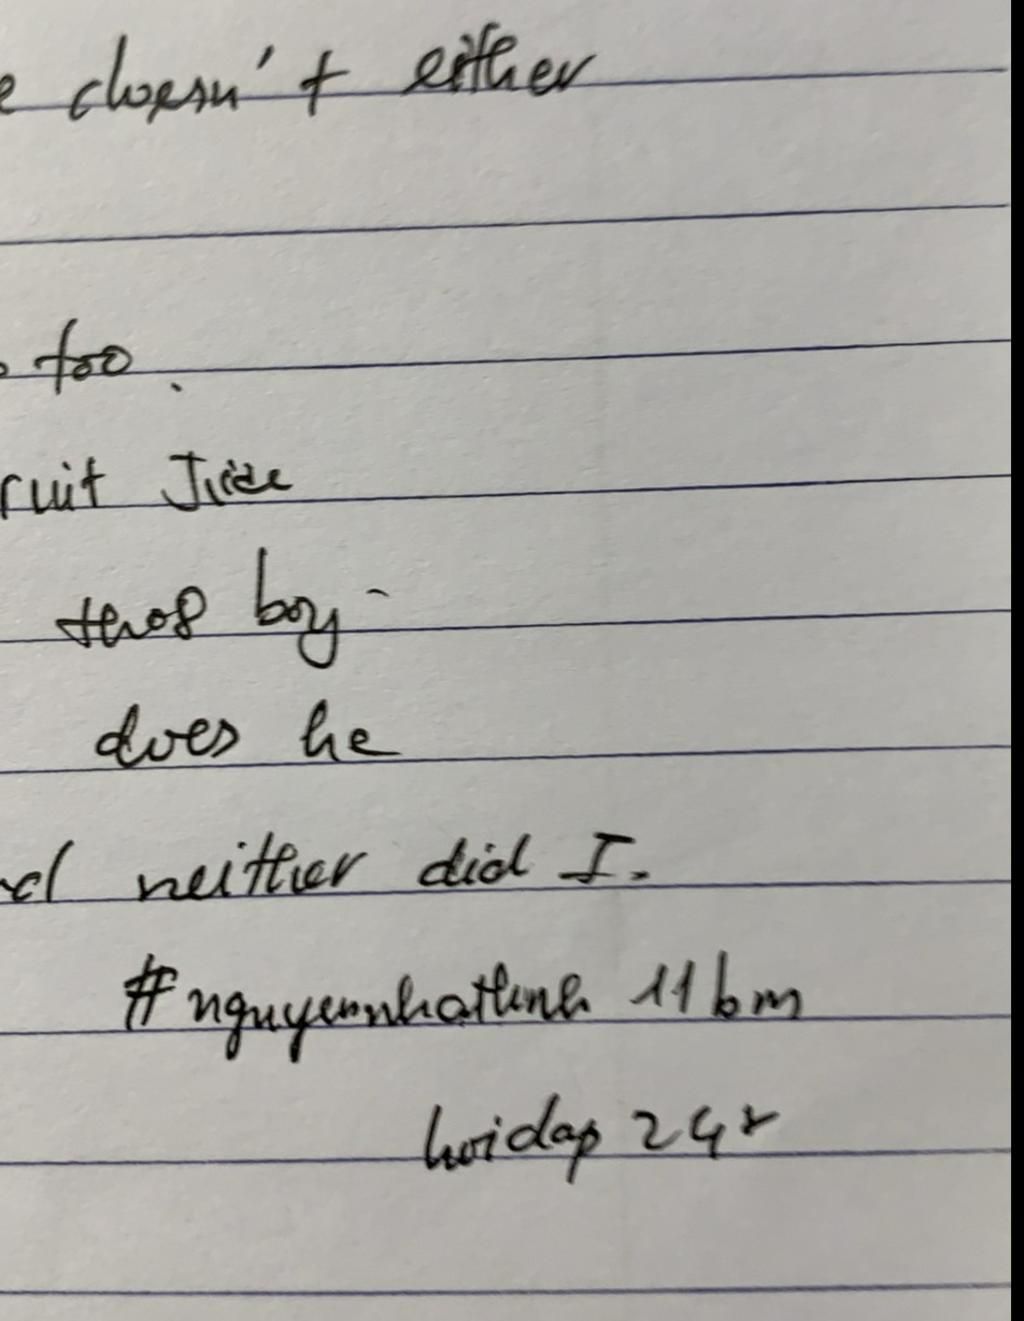 e doesn't either
o too.
ruit Juice
thos boy.
does he
nd neither did I.
#nguyennhatlinh 11bm
hoidap 24r